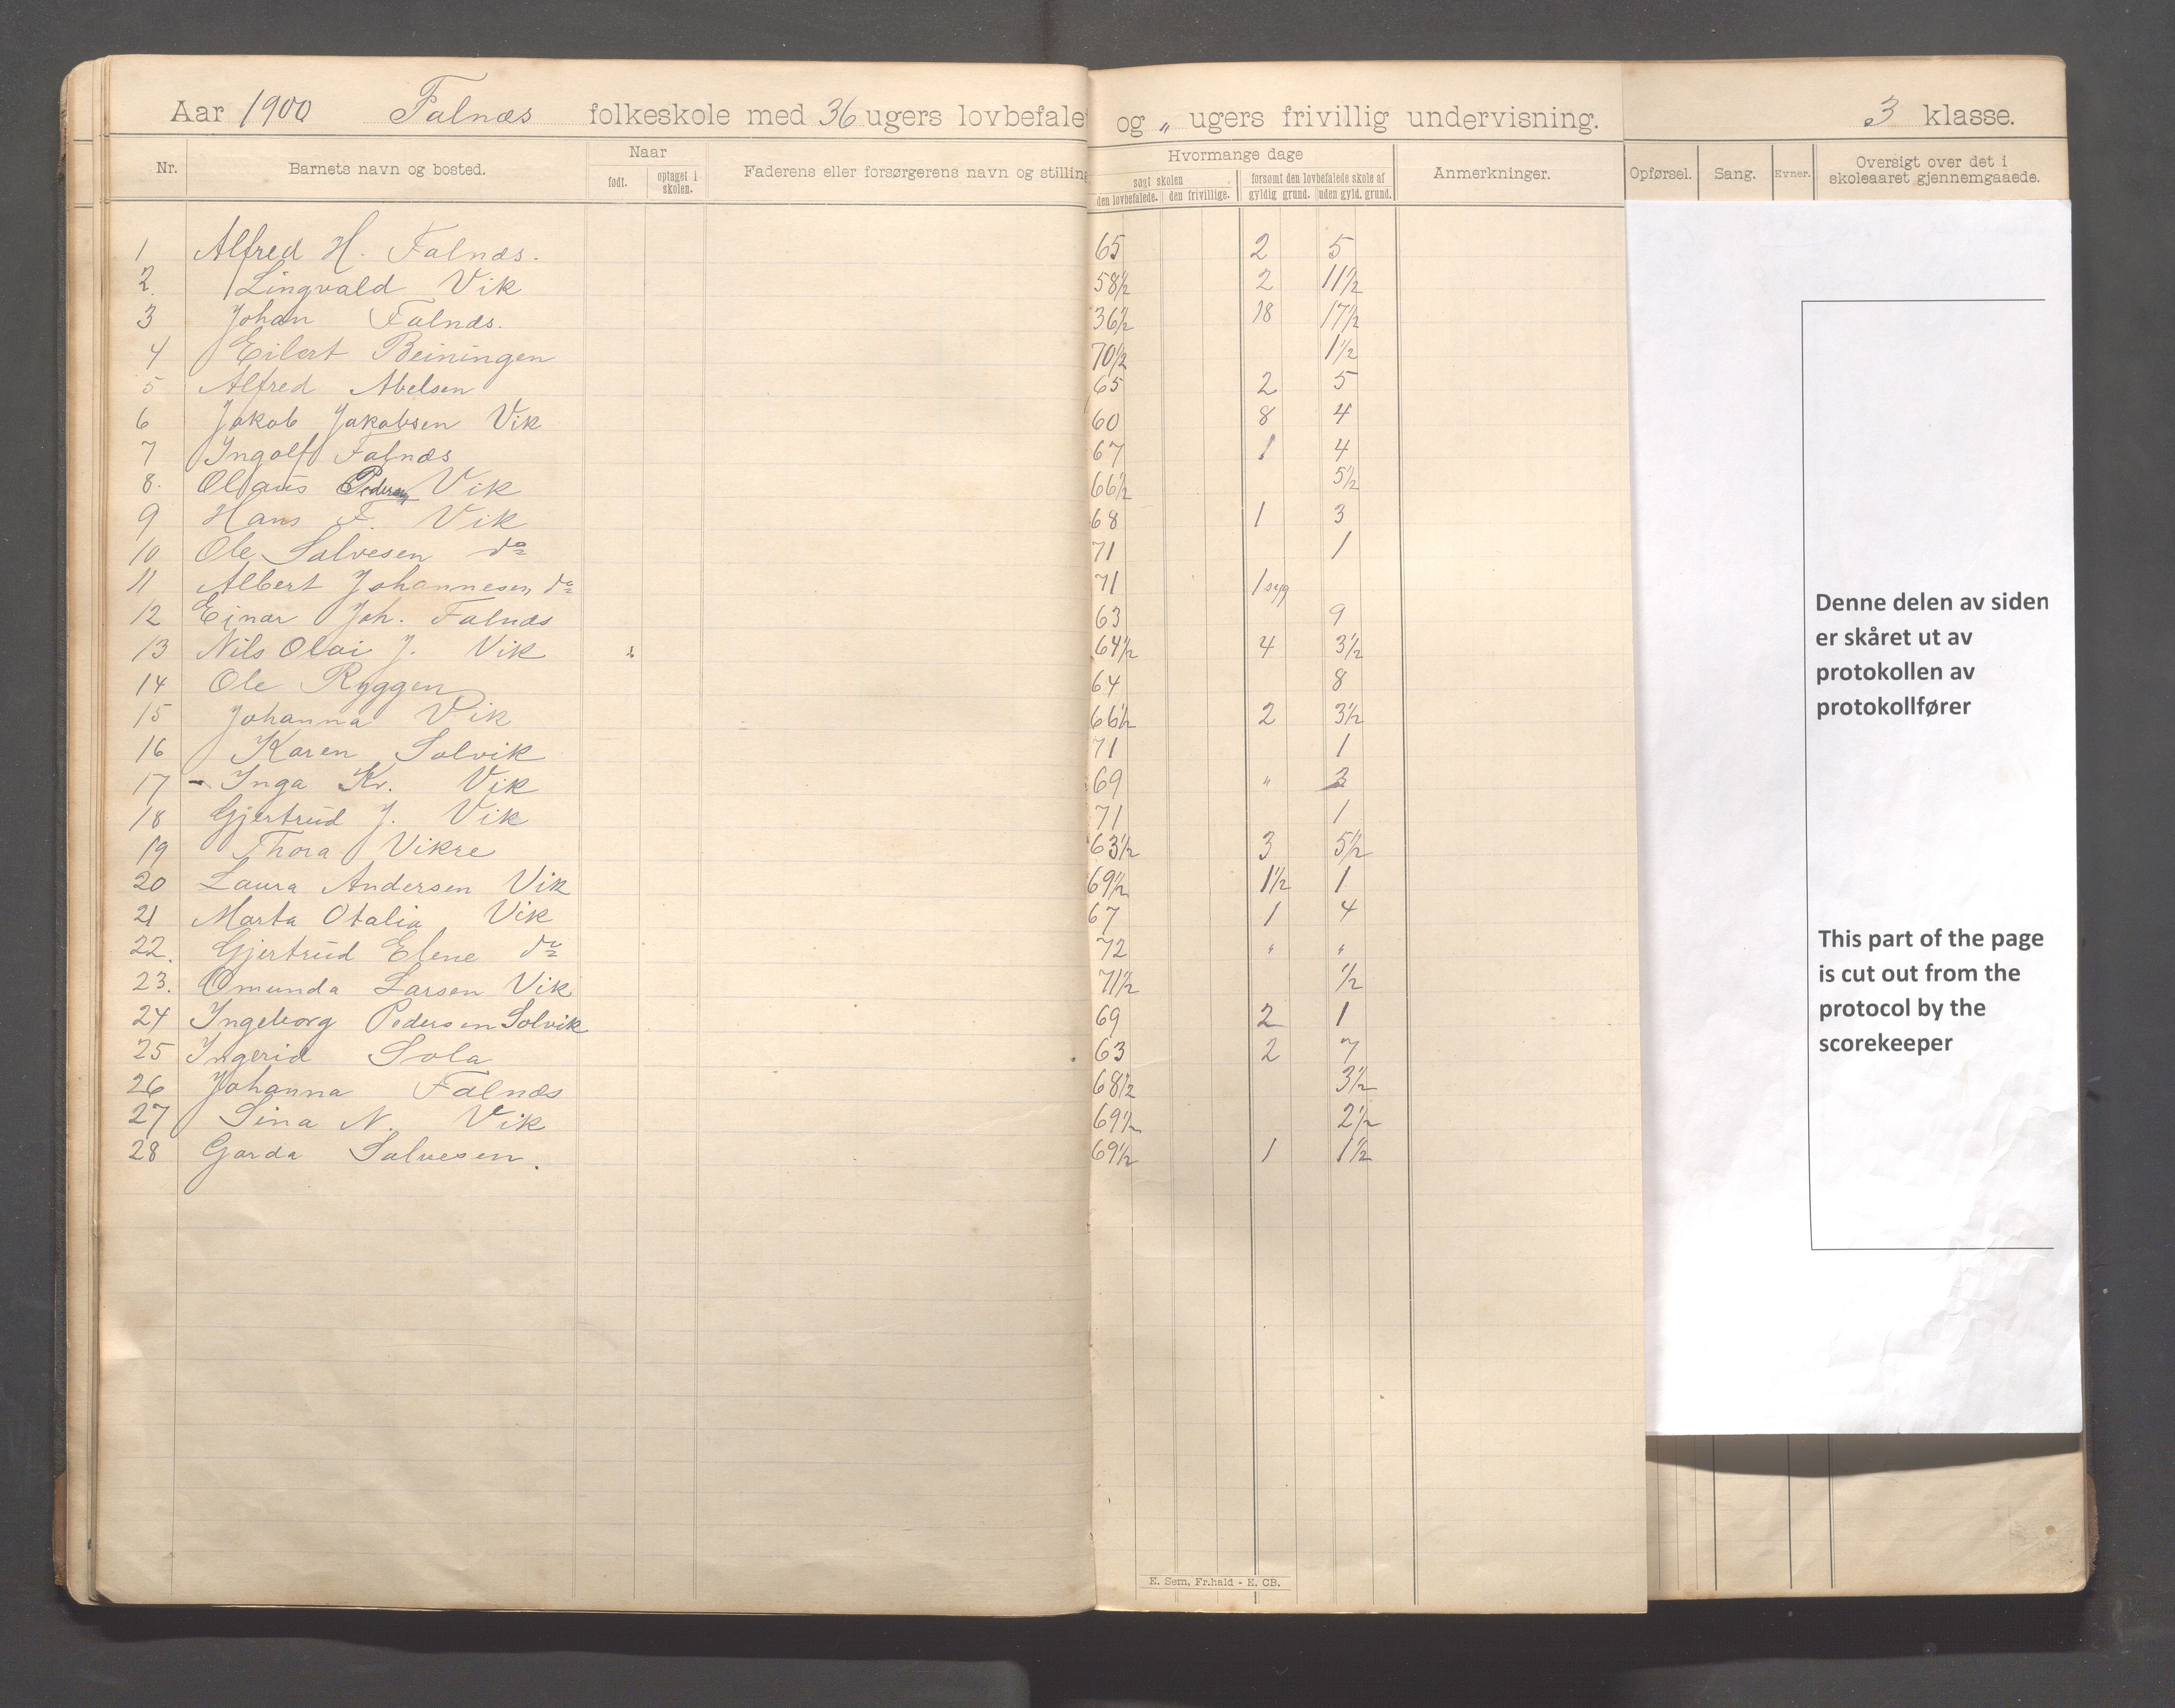 Aar 1900 Falnæs folkeskole med 36 ugers lovbefalet og „ ugers frivillig undervisning. 3 klasse.
Nr. Barnets navn og bosted. Naar født. optaget i skolen. Faderens eller forsørgerens navn og stilling Hvormange dage søgt skolen den lovbefalede. den frivillige. forsømt den lovbefalede skole af gyldig grund. uden gyld. grund. Anmerkninger. Opførsel. Sang. Evner. Oversigt over det i skoleaaret gjennemgaaede.
1 Alfred H. Falnæs. 65 2 5
2. Lingvald Vik 58½ 2 11½
3 Johan Falnæs. 36½ 18 17½
4 Eilert Beiningen 70½ 1½
5 Alfred Abelsen 65 2 5
6 Jakob Jakobsen Vik 60 8 4
7 Ingolf Falnæs 67 1 4
8. Olaus Pedersen Vik 66½ 5½
9 Hans F. Vik 68 1 3
10 Ole Salvesen do 71 1
11 Albert Johannesen do 71 1 syg
12 Einar Joh. Falnæs 63 9
13 Nils Olai J. Vik 64½ 4 3½
14 Ole Ryggen 64 8
15 Johanna Vik 66½ 2 3½
16 Karen Solvik 71 1
17 - Inga Kr. Vik 69 „ 3
18 Gjertrud J. Vik 71 1
19 Thora Vikre 63½ 3 5½
20 Laura Andersen Vik 69½ 1½ 1
21 Marta Otalia Vik 67 1 4
22. Gjertrud Elene do 72 „ „
23. Omunda Larsen Vik 71½ ½
24 Ingeborg Pedersen Solvik 69 2 1
25 Ingerid Sola 63 2 7
26 Johanna Falnæs 68½ 3½
27 Sina N. Vik 69½ 2½
28 Garda Salvesen. 69½ 1 1½
E. Sem, Fr.hald - E. CB.
Denne delen av siden
er skåret ut av
protokollen av
protokollfører
This part of the page
is cut out from the
protocol by the
scorekeeper